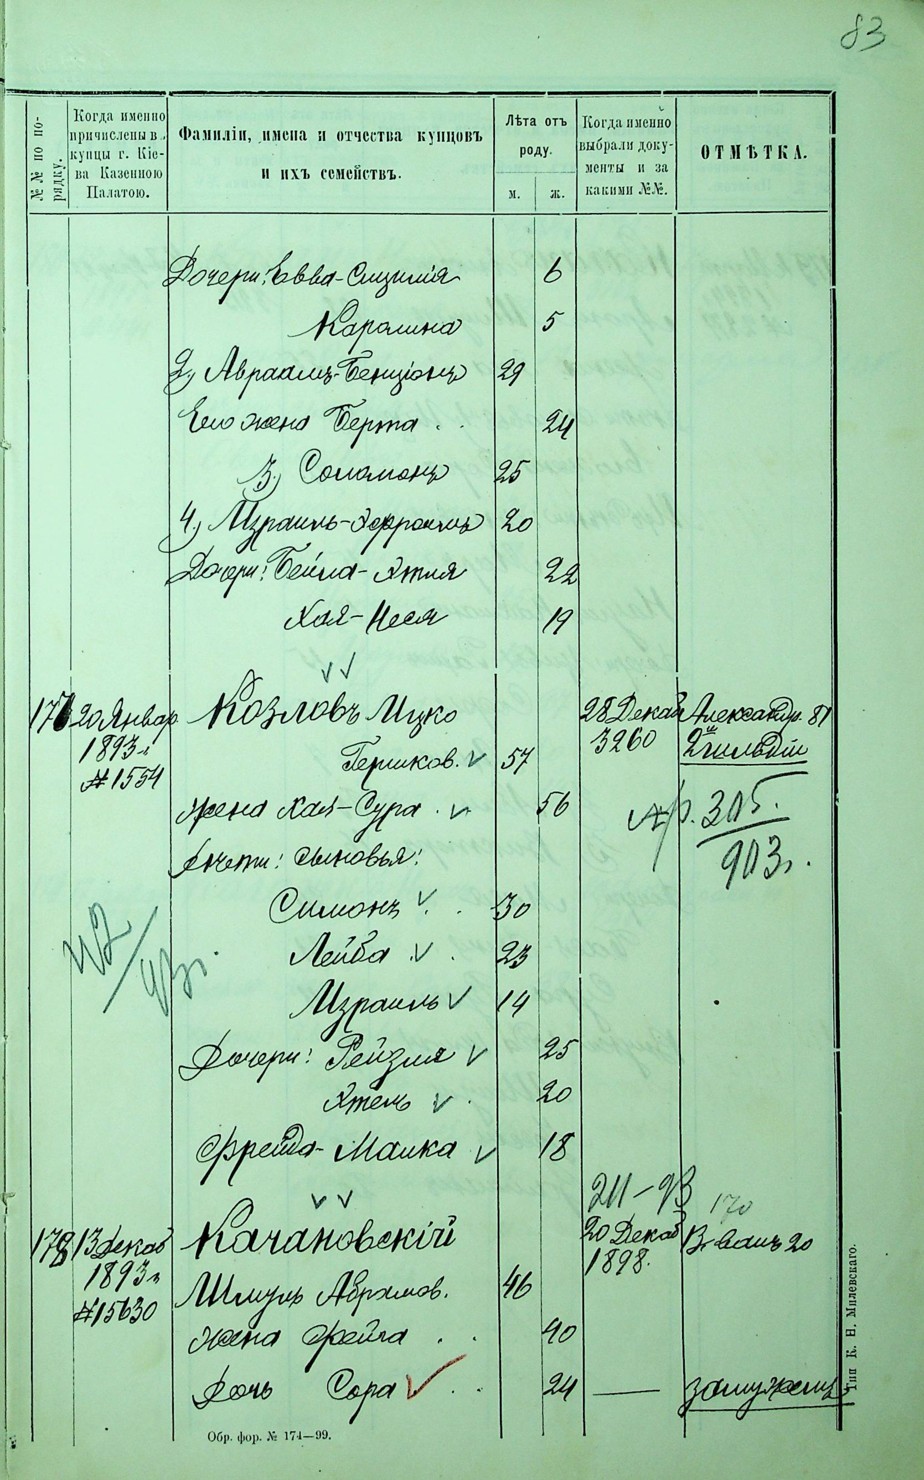 83
№№ по по-
рядку.
Когда именно
причислены в
купцы г. Кіе-
ва Казенною
Палатою.
Фамиліи, имена и отчества купцовъ
и ихъ семействъ.
Лѣта отъ
роду.
м. ж.
Когда именно
выбрали доку-
менты и за
какими №№.
ОТМѢТКА.
Дочери: Евва-Сицилія 6
Каролина 5
2) Авраамъ-Бенціонъ 29
Его жена Берта . . 24
3) Соломонъ 25
4) Израиль-Эфроимъ 20
Дочери: Бейла-Этля 22
Хая-Неся 19
177 20 Январ Козловъ Ицко 28 Декаб Александр. 81
1893 г. Гершков. 57 3260 2й гильдіи
№ 1554
Жена Хая-Сура . 56 305.
903 г.
Дѣти: сыновья:
Симонъ . . 30
Лейба . . 23
Израиль 14
Дочери: Рейзля 25
Этель . 20
Фрейда-Малка 18
211-93
170
178 13 Декаб Качановскій 20 Декаб В. Вал. 20
1893 г. Шмуль Абрамов. 46 1898.
№ 15630
Жена Фейга . . 40
Дочь Сора . . 24 — замужемъ
Обр. фор. № 174—99.
Тип К. Н. Милевскаго.